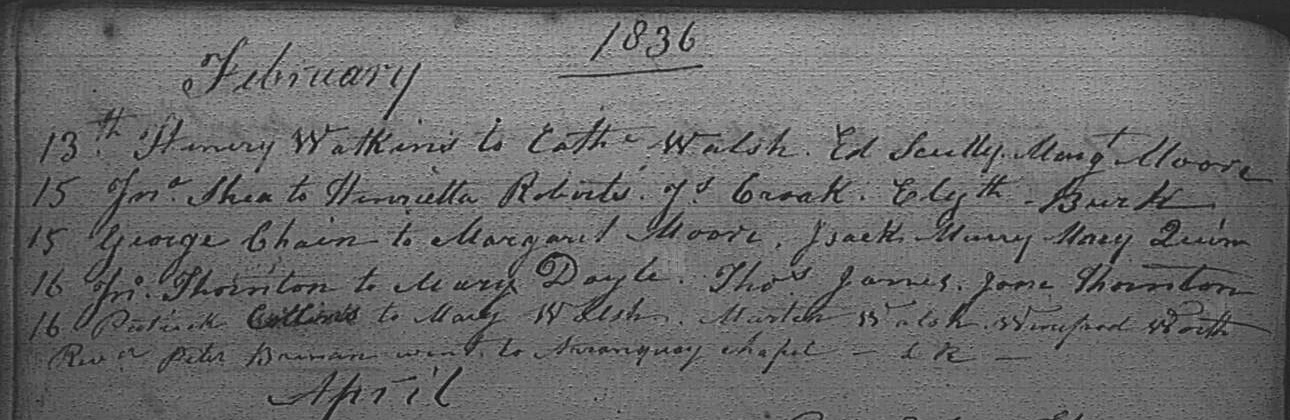 1836
February
13th Henry Watkins to Cathe Walsh. Ed Scully. Margt Moore
15 Jno. Shea to Henrietta Roberts. Js Croak. Elyth Burk
15 George Chain to Margaret Moore. Isack Murry Mary Quinn
16 Jno. Thornton to Mary Doyle. Thos James. Jane Thornton
16 Patrick Collins to Mary Walsh. Martin Walsh. Winefred
Revd Peter went to Arranquay chapel
April